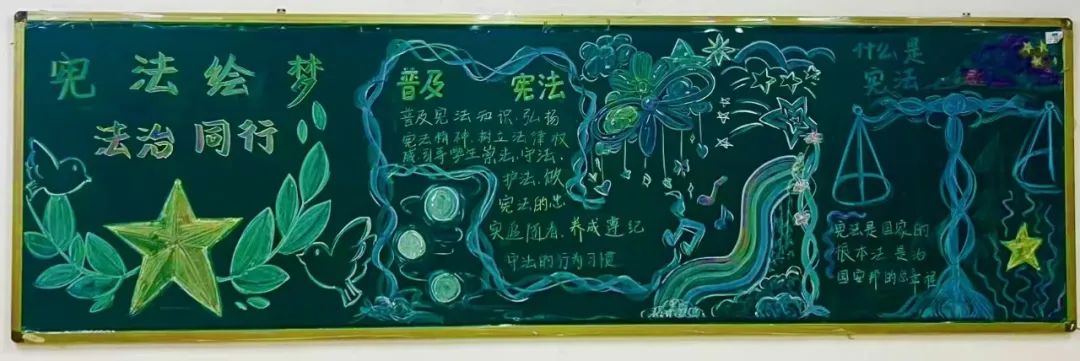 宪法绘梦
法治同行
普及 宪法
普及宪法知识,弘扬
宪法精神,树立法律权
威,引导学生崇法、守法、
护法、做
宪法的忠
实追随者、养成遵纪
守法的行为习惯
什么是
宪法
宪法是国家的
根本法是治
国安邦的总章程